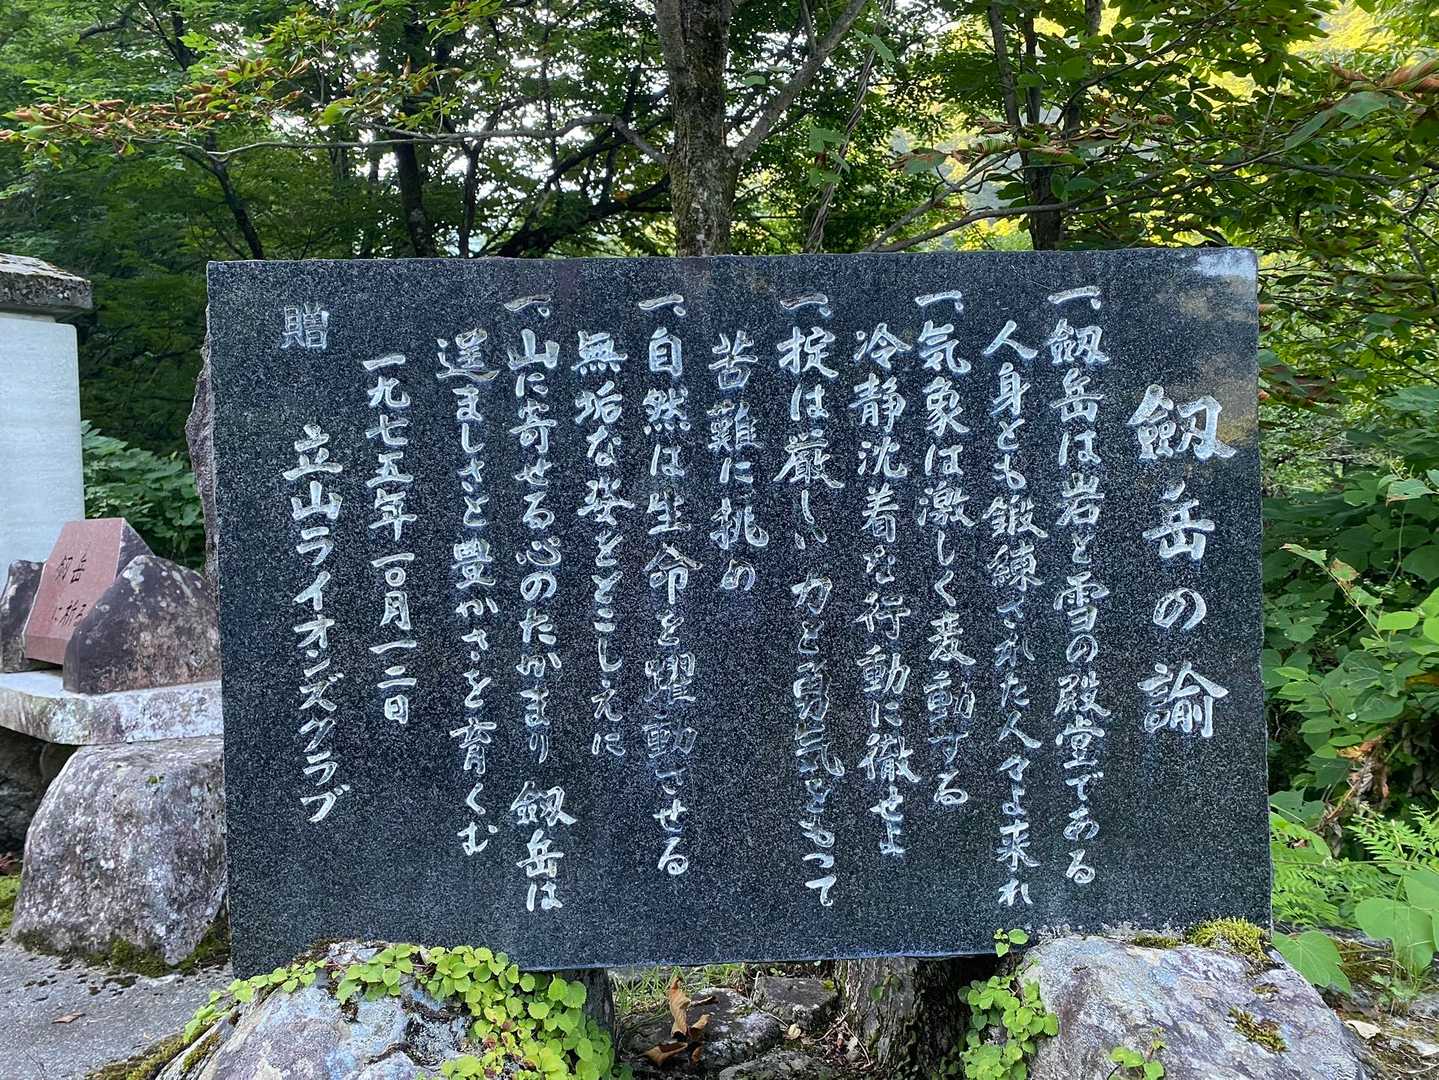 劔岳の諭
一、劔岳は岩と雪の殿堂である
人身とも鍛練された人々よ来れ
一、気象は激しく変動する
冷静沈着な行動に徹せよ
一、掟は厳しい 力と勇気をもつて
苦難に挑め
一、自然は生命を躍動させる
無垢な姿をとこしえに
一、山に寄せる心のたかまり 劔岳は
逞ましさと豊かさを育くむ
一九七五年一〇月一二日
贈 立山ライオンズクラブ
劔岳
に祈る